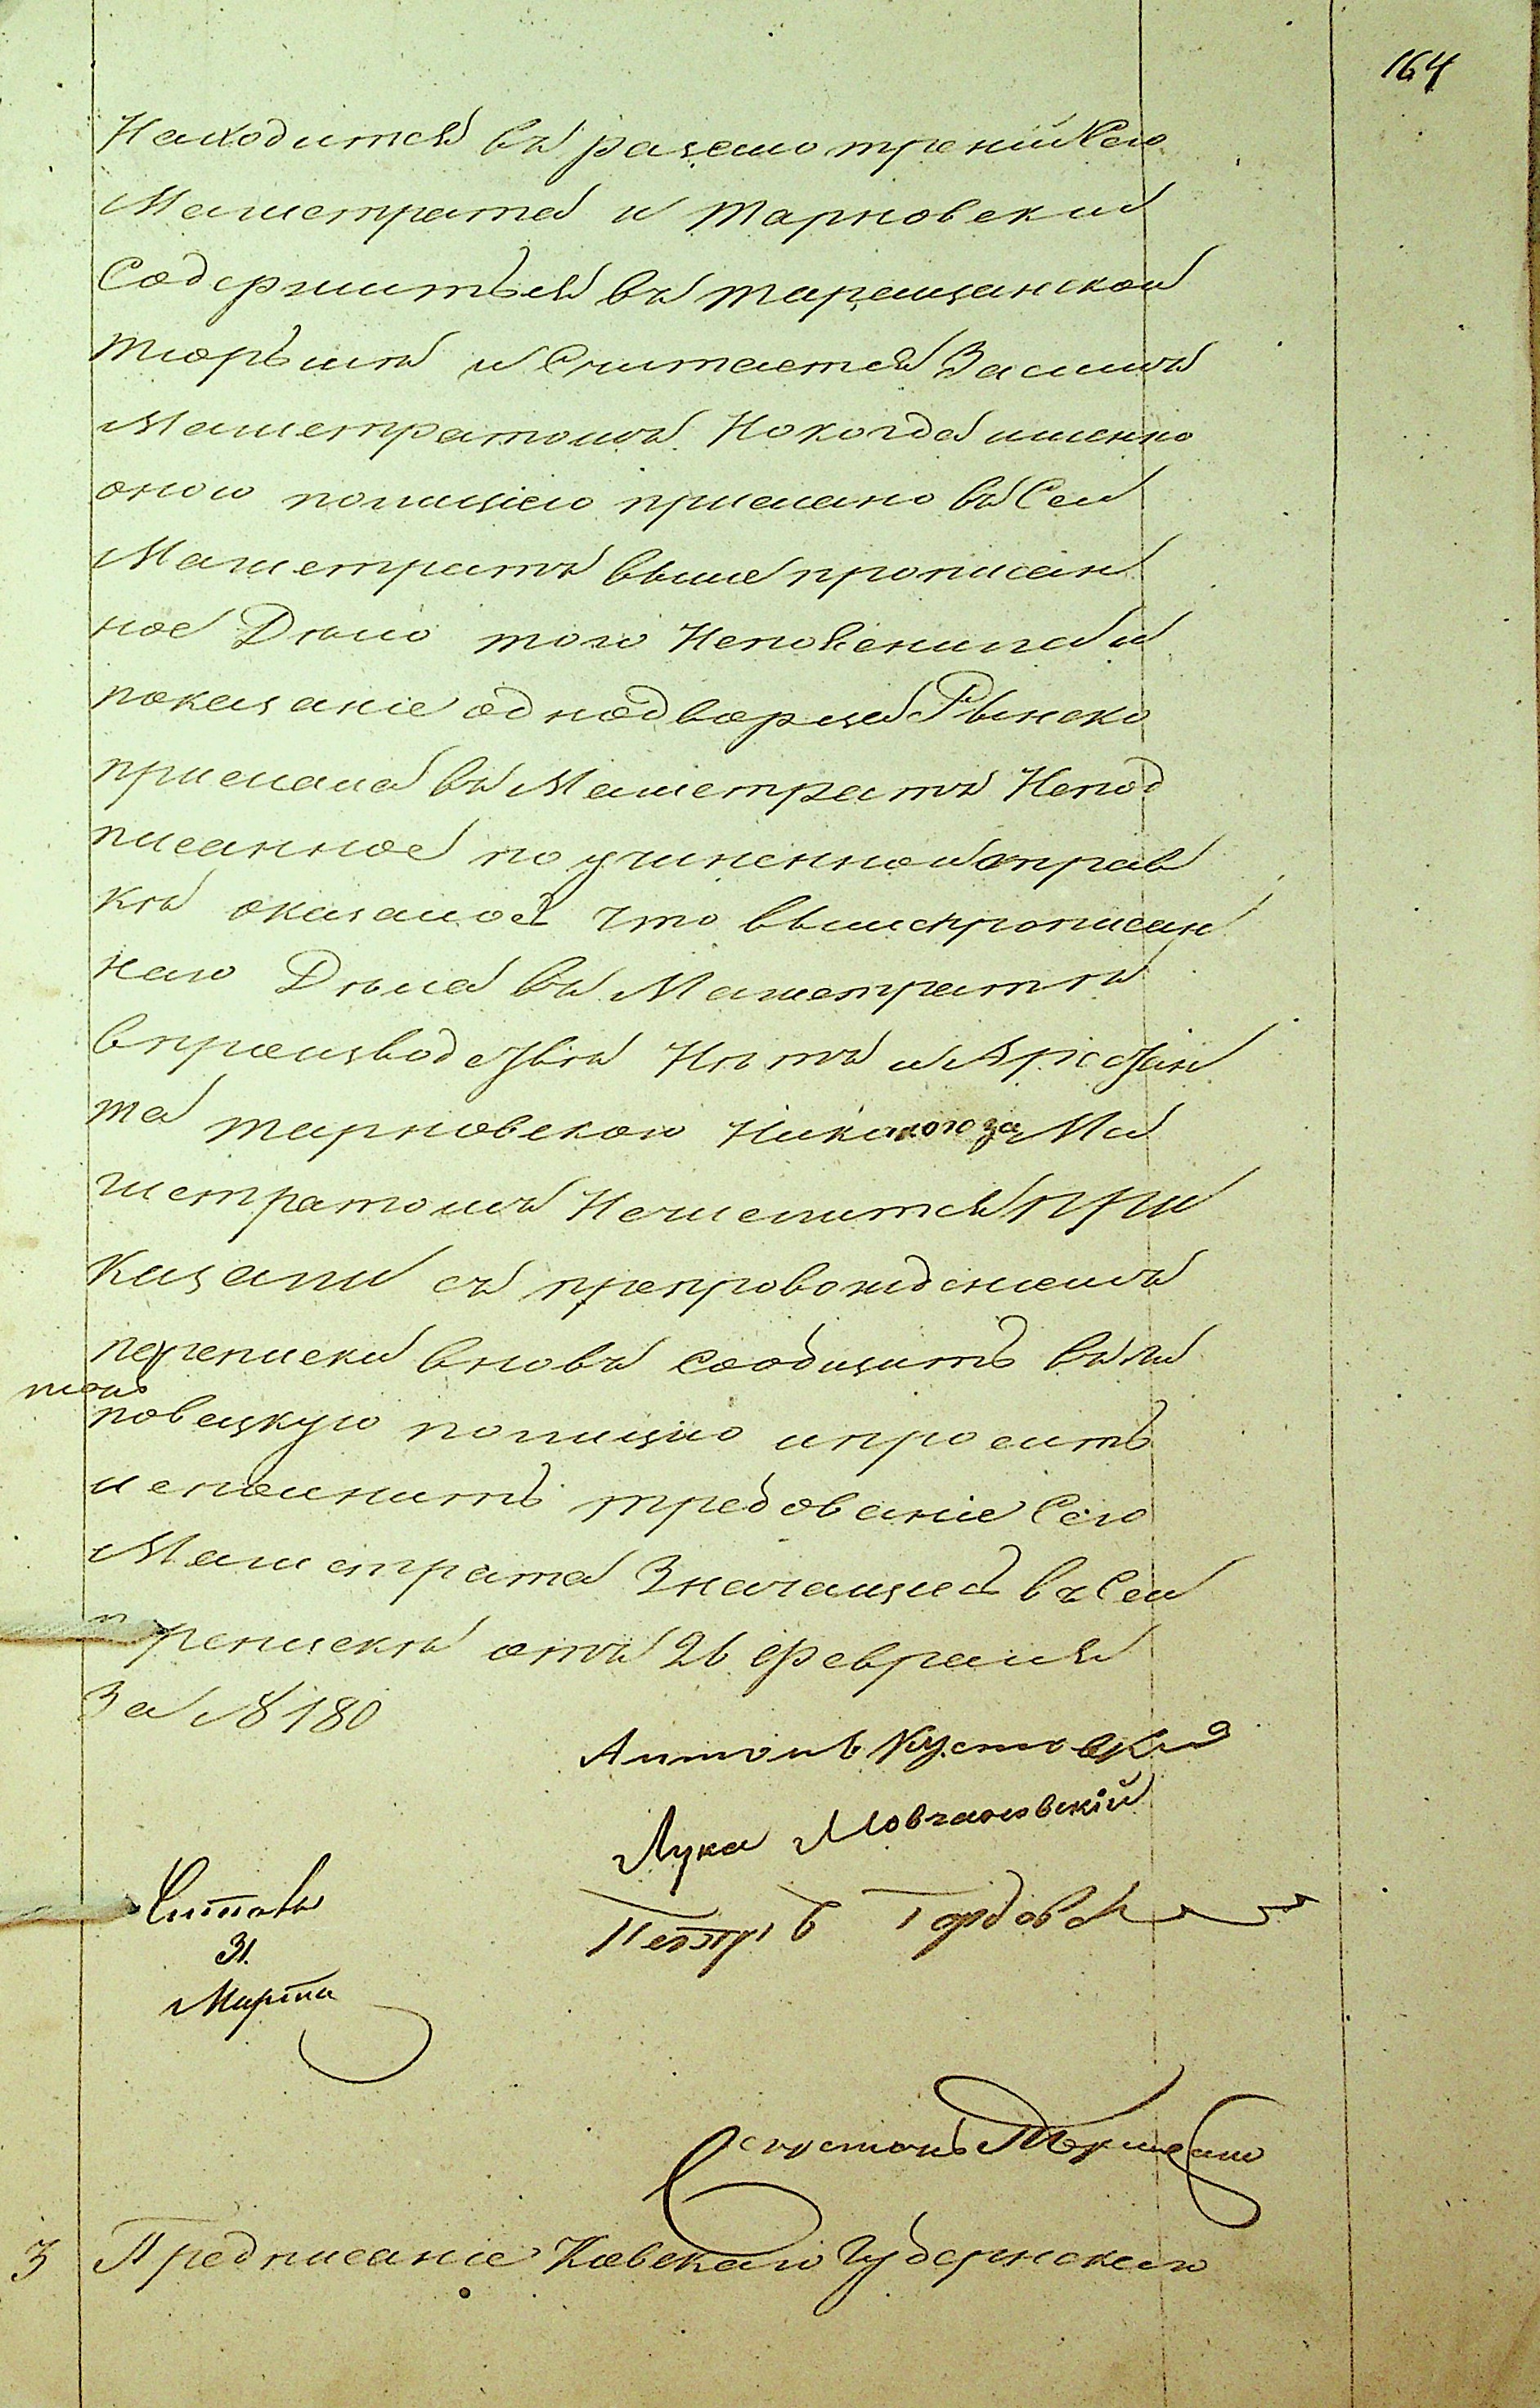 164
Находится въ разсмотреніи Сего
Магистрата и Тарновскій
Содержитьея въ таращанской
тюрьмѣ и Считается Засимъ
Магистратомъ. Но когда именно
оною полициею прислано въ Сей
Магистратъ выше прописан
ное Дѣло того Непояснила и
показание однодворца Рынско
прислала въ Магистратъ Непод
писанное по учиненной справ
кѣ оказалось что вышепрописан
наго Дѣла въ Магистратѣ
впроизводствѣ Нѣтъ и Арестан
та тарновского Никакого за Ма
гистратомъ Нечислится При
казали съ препровождениемъ
переписки вновь Сообщить въ ли
повецкую полицию и просить
исполнить требование Сего
Магистрата Значащееся въ Сей
пт реписки отъ 26 Февраля
За № 180
Антонъ Кустовскій
Лука Мовчановскій
Петръ Гордовск
Читалъ
31.
Марта
3 Предписание Киевскаго Губернскаго